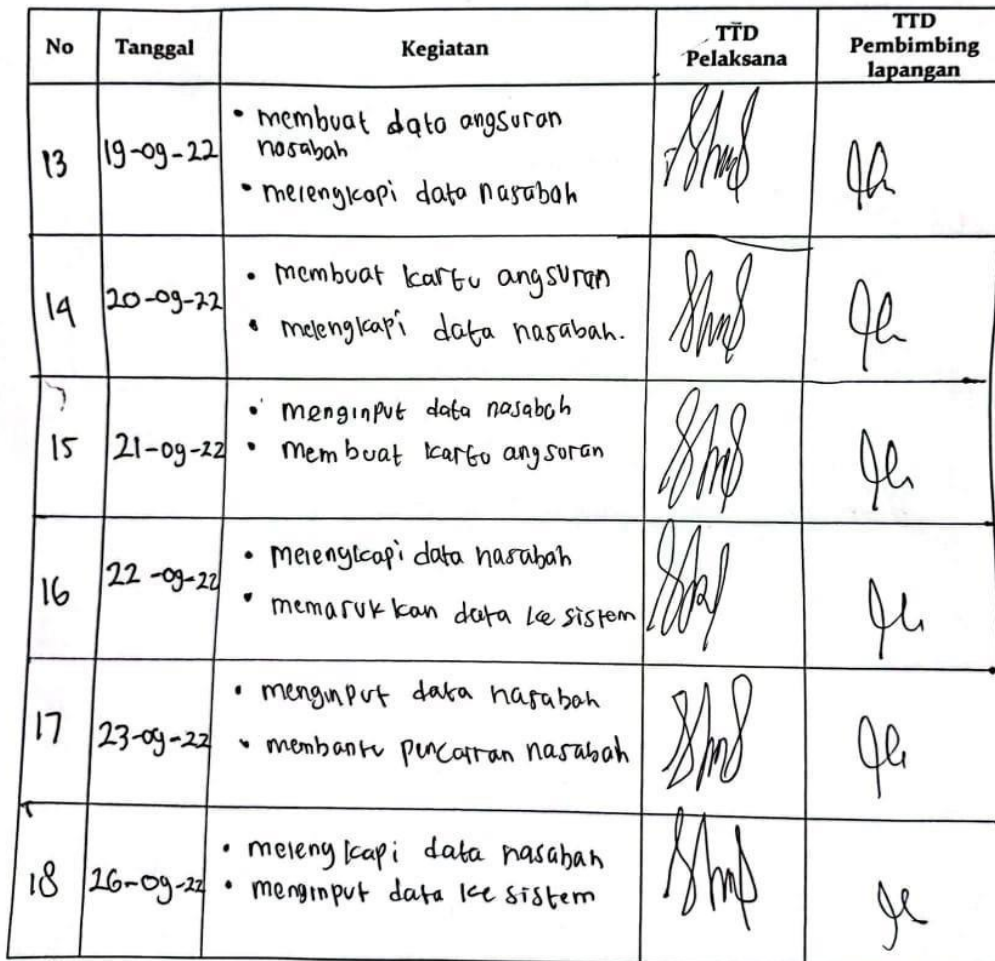 No Tanggal Kegiatan TTD Pelaksana TTD Pembimbing lapangan
13 19-09-22
• membuat data angsuran
nasabah
• melengkapi data nasabah
14 20-09-22
• membuat kartu angsuran
• melengkapi data nasabah.
15 21-09-22
• menginput data nasabah
• membuat kartu angsuran
16 22-09-22
• melengkapi data nasabah
• memasukkan data ke sistem
17 23-09-22
• menginput data nasabah
• membantu pencairan nasabah
18 26-09-22
• melengkapi data nasabah
• menginput data ke sistem